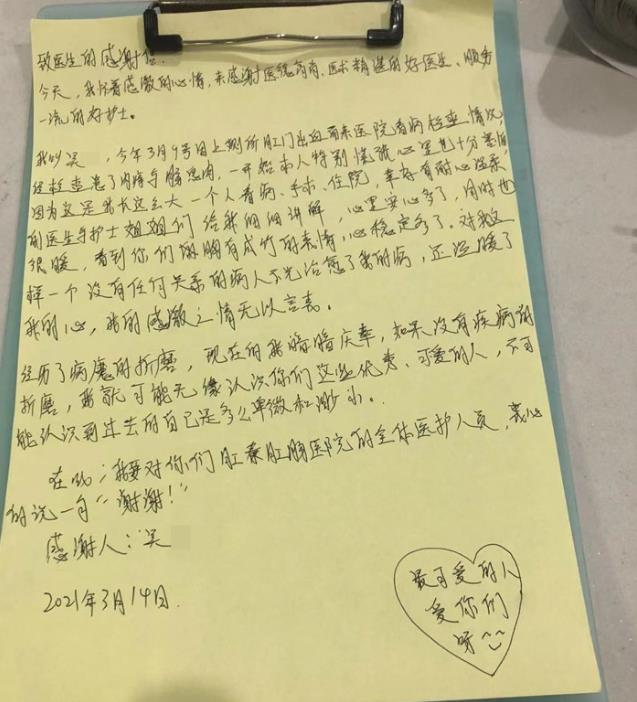 致医生的感谢信:
今天,我怀着感激的心情,来感谢医德高尚、医术精湛的好医生、服务
一流的好护士。
我叫吴 ,今年3月9号因上厕所肛门出血而来医院看病检查情况,
经检查患了内痔与肠息肉,一开始本人特别慌张心里也十分害怕
因为这是我长这么大一个人看病、手术、住院,幸好有耐心温柔
的医生与护士姐姐们给我细细讲解,心里安心多了,同时也
很暖,看到你们的胸有成竹的表情,心稳定多了。对我这
样一个没有任何关系的病人不光治愈了我的病,还温暖了
我的心,我的感激之情无以言表。
经历了病魔的折磨,现在的我暗暗庆幸,如果没有疾病的
折磨,我就可能无缘认识你们这些优秀、可爱的人,不可
能认识到过去的自己是多么卑微和渺小。
在此,我要对你们肛泰肛肠医院的全体医护人员,衷心
的说一句“谢谢!”
感谢人:吴
2021年3月14日.
最可爱的人
爱你们
呀^^